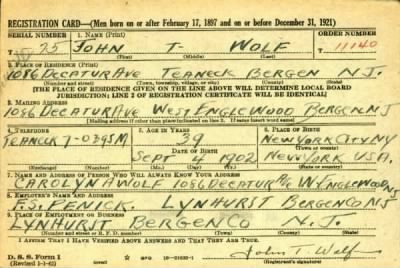 REGISTRATION CARD—(Men born on or after February 17, 1897 and on or before December 31, 1921)
SERIAL NUMBER 1. NAME (Print) ORDER NUMBER
T 75 JOHN T WOLF 11140
(First) (Middle) (Last)
2. PLACE OF RESIDENCE (Print)
1086 DECATUR AVE TEANECK BERGEN N.J.
(Number and street) (Town, township, village, or city) (County) (State)
[THE PLACE OF RESIDENCE GIVEN ON THE LINE ABOVE WILL DETERMINE LOCAL BOARD
JURISDICTION; LINE 2 OF REGISTRATION CERTIFICATE WILL BE IDENTICAL]
3. MAILING ADDRESS
1086 DECATUR AVE WEST ENGLEWOOD BERGEN NJ
[Mailing address if other than place indicated on line 2. If same insert word same]
4. TELEPHONE 5. AGE IN YEARS 6. PLACE OF BIRTH
TEANECK 7-0395M 39 NEW YORK CITY NY
DATE OF BIRTH (Town or county)
SEPT 4 1902 NEW YORK USA.
(Exchange) (Number) (Mo.) (Day) (Yr.) (State or country)
7. NAME AND ADDRESS OF PERSON WHO WILL ALWAYS KNOW YOUR ADDRESS
CAROLYN WOLF 1086 DECATUR AVE W ENGLEWOOD NJ
8. EMPLOYER'S NAME AND ADDRESS
LYNHURST BERGEN CO NJ
9. PLACE OF EMPLOYMENT OR BUSINESS
LYNHURST BERGEN CO N.J.
(Number and street or R. F. D. number) (Town) (County) (State)
I AFFIRM THAT I HAVE VERIFIED ABOVE ANSWERS AND THAT THEY ARE TRUE.
D. S. S. Form 1
(Revised 1-1-42) (over) John T. Wolf
(Registrant's signature)